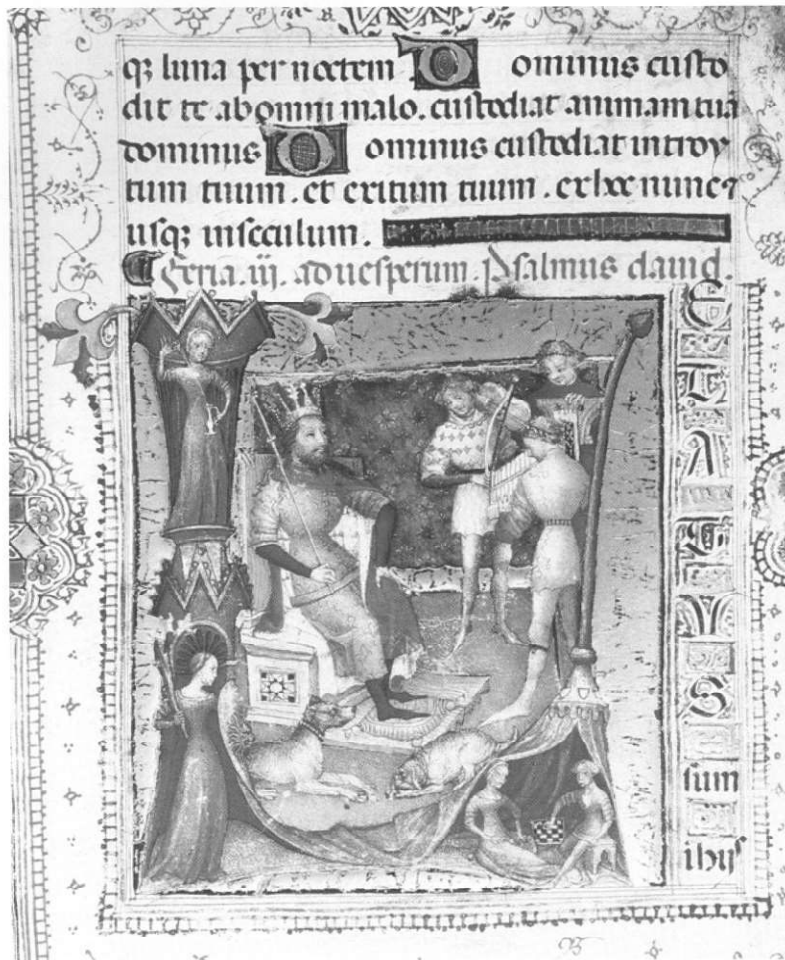 qꝫ luna per noctem Dominus custo
dit te abomni malo. custodiat animam tuã
dominus Dominus custodiat introy
tum tuum. et exitum tuum. exhoc nunc ⁊
usqꝫ inseculum.
Feria. iij. aduesperum. Psalmus dauid.
L
E
T
A
T
V
S
sum
ihijs